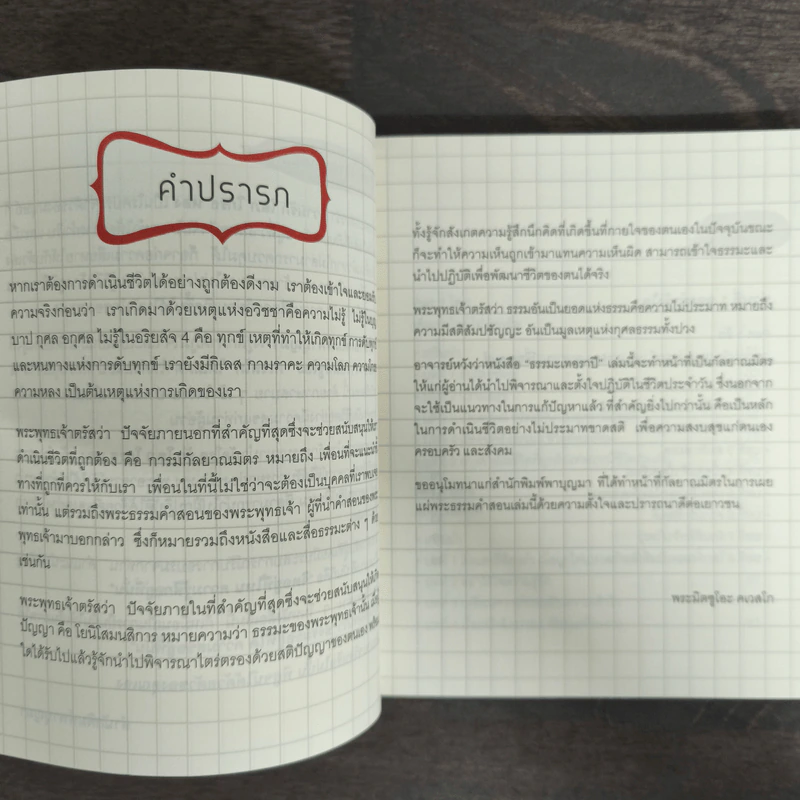 คำปรารภ
หากเราต้องการดำเนินชีวิตได้อย่างถูกต้องดีงาม เราต้องเข้าใจและยอมรับ
ความจริงก่อนว่า เราเกิดมาด้วยเหตุแห่งอวิชชาคือความไม่รู้ ไม่รู้ในบุญ
บาป กุศล อกุศล ไม่รู้ในอริยสัจ 4 คือ ทุกข์ เหตุที่ทำให้เกิดทุกข์ การดับทุกข์
และหนทางแห่งการดับทุกข์ เรายังมีกิเลส กามราคะ ความโลภ ความโกรธ
ความหลง เป็นต้นเหตุแห่งการเกิดของเรา
พระพุทธเจ้าตรัสว่า ปัจจัยภายนอกที่สำคัญที่สุดซึ่งจะช่วยสนับสนุนให้เรา
ดำเนินชีวิตที่ถูกต้อง คือ การมีกัลยาณมิตร หมายถึง เพื่อนที่จะแนะนำ
ทางที่ถูกที่ควรให้กับเรา เพื่อนในที่นี้ไม่ใช่ว่าจะต้องเป็นบุคคลที่เราพบเจอ
เท่านั้น แต่รวมถึงพระธรรมคำสอนของพระพุทธเจ้า ผู้ที่นำคำสอนของพระ
พุทธเจ้ามาบอกกล่าว ซึ่งก็หมายรวมถึงหนังสือและสื่อธรรมะต่าง ๆ ด้วย
เช่นกัน
พระพุทธเจ้าตรัสว่า ปัจจัยภายในที่สำคัญที่สุดซึ่งจะช่วยสนับสนุนให้เกิด
ปัญญา คือ โยนิโสมนสิการ หมายความว่า ธรรมะของพระพุทธเจ้านั้น เมื่อผู้
ใดได้รับไปแล้วรู้จักนำไปพิจารณาไตร่ตรองด้วยสติปัญญาของตนเอง พร้อม
ทั้งรู้จักสังเกตความรู้สึกนึกคิดที่เกิดขึ้นที่กายใจของตนเองในปัจจุบันขณะ
ก็จะทำให้ความเห็นถูกเข้ามาแทนความเห็นผิด สามารถเข้าใจธรรมะและ
นำไปปฏิบัติเพื่อพัฒนาชีวิตของตนได้จริง
พระพุทธเจ้าตรัสว่า ธรรมอันเป็นยอดแห่งธรรมคือความไม่ประมาท หมายถึง
ความมีสติสัมปชัญญะ อันเป็นมูลเหตุแห่งกุศลธรรมทั้งปวง
อาจารย์หวังว่าหนังสือ "ธรรมะเทอราปี" เล่มนี้จะทำหน้าที่เป็นกัลยาณมิตร
ให้แก่ผู้อ่านได้นำไปพิจารณาและตั้งใจปฏิบัติในชีวิตประจำวัน ซึ่งนอกจาก
จะใช้เป็นแนวทางในการแก้ปัญหาแล้ว ที่สำคัญยิ่งไปกว่านั้น คือเป็นหลัก
ในการดำเนินชีวิตอย่างไม่ประมาทขาดสติ เพื่อความสงบสุขแก่ตนเอง
ครอบครัว และสังคม
ขออนุโมทนาแก่สำนักพิมพ์พาบุญมา ที่ได้ทำหน้าที่กัลยาณมิตรในการเผย
แผ่พระธรรมคำสอนเล่มนี้ด้วยความตั้งใจและปรารถนาดีต่อเยาวชน
พระมิตซูโอะ คเวสโก